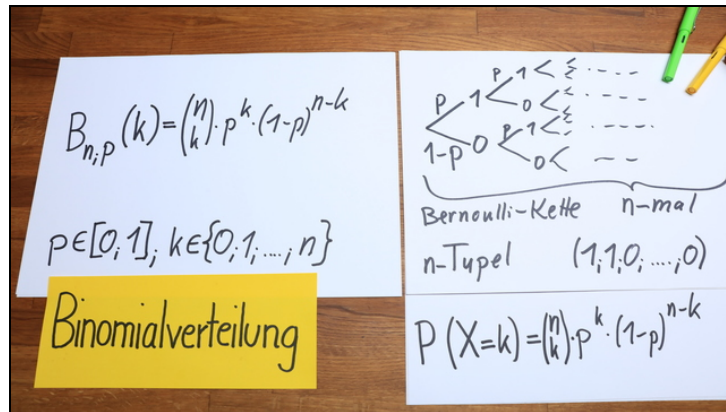 B_{n;p}(k) = \binom{n}{k} · p^k · (1-p)^{n-k}
p∈[0;1]; k∈{0;1;....;n}
Binomialverteilung
p 1 < ....
p 1 0 < ....
1-p 0 p 1 < ....
0 < ....
Bernoulli-Kette n-mal
n-Tupel (1;1;0;....;0)
P(X=k) = \binom{n}{k} · p^k · (1-p)^{n-k}